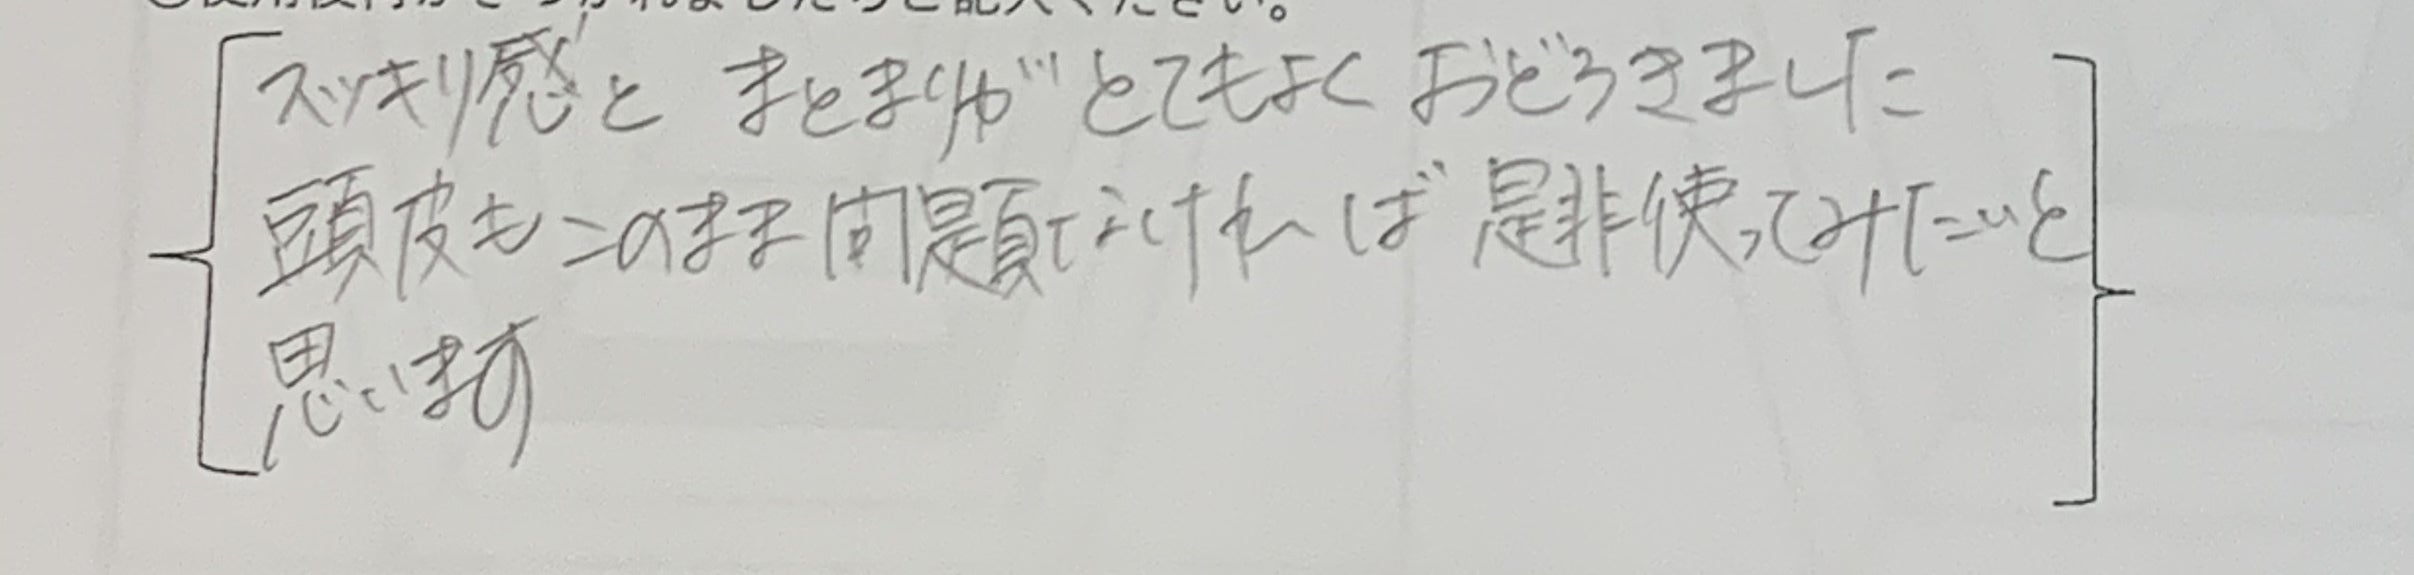 スッキリ感と まとまりが とてもよく おどろきました
頭皮もこのまま問題なければ 是非使ってみたいと
思います